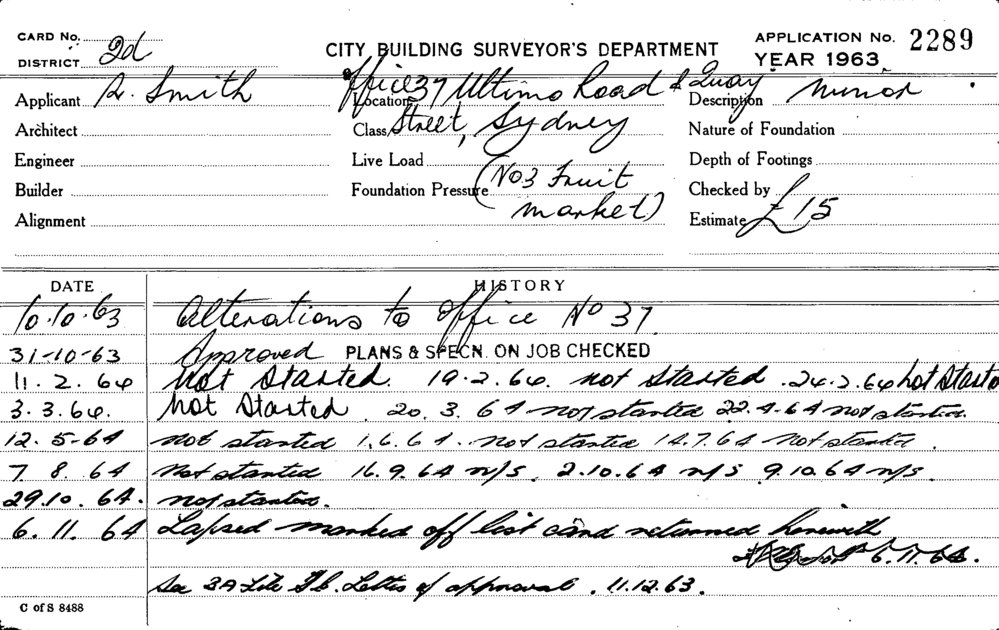 CARD No.
DISTRICT 2d
CITY BUILDING SURVEYOR'S DEPARTMENT
APPLICATION No. 2289
YEAR 1963
Applicant R. Smith
Location Office 37 Ultimo Road & Quay
Description Minor
Architect
Class Street, Sydney
Nature of Foundation
Engineer
Live Load
Depth of Footings
Builder
Foundation Pressure (No 3 Fruit
Checked by
Alignment
market)
Estimate £15
DATE HISTORY
10.10.63 Alterations to Office No 37
31-10-63 Approved PLANS & SPECN. ON JOB CHECKED
11.2.64 Not Started. 19.2.64. not started. 24.2.64 not started
3.3.64. Not Started. 20.3.64 not started 22.4.64 not started.
12.5-64 not started 1.6.64. not started 14.7.64 not started.
7.8.64 Not started 16.9.64 n/s. 2.10.64 n/s 9.10.64 n/s.
29.10.64. not started.
6.11.64 Lapsed marked off list card returned herewith
6.11.64.
See 3A File Letter of approval. 11.12.63.
C of S 8488